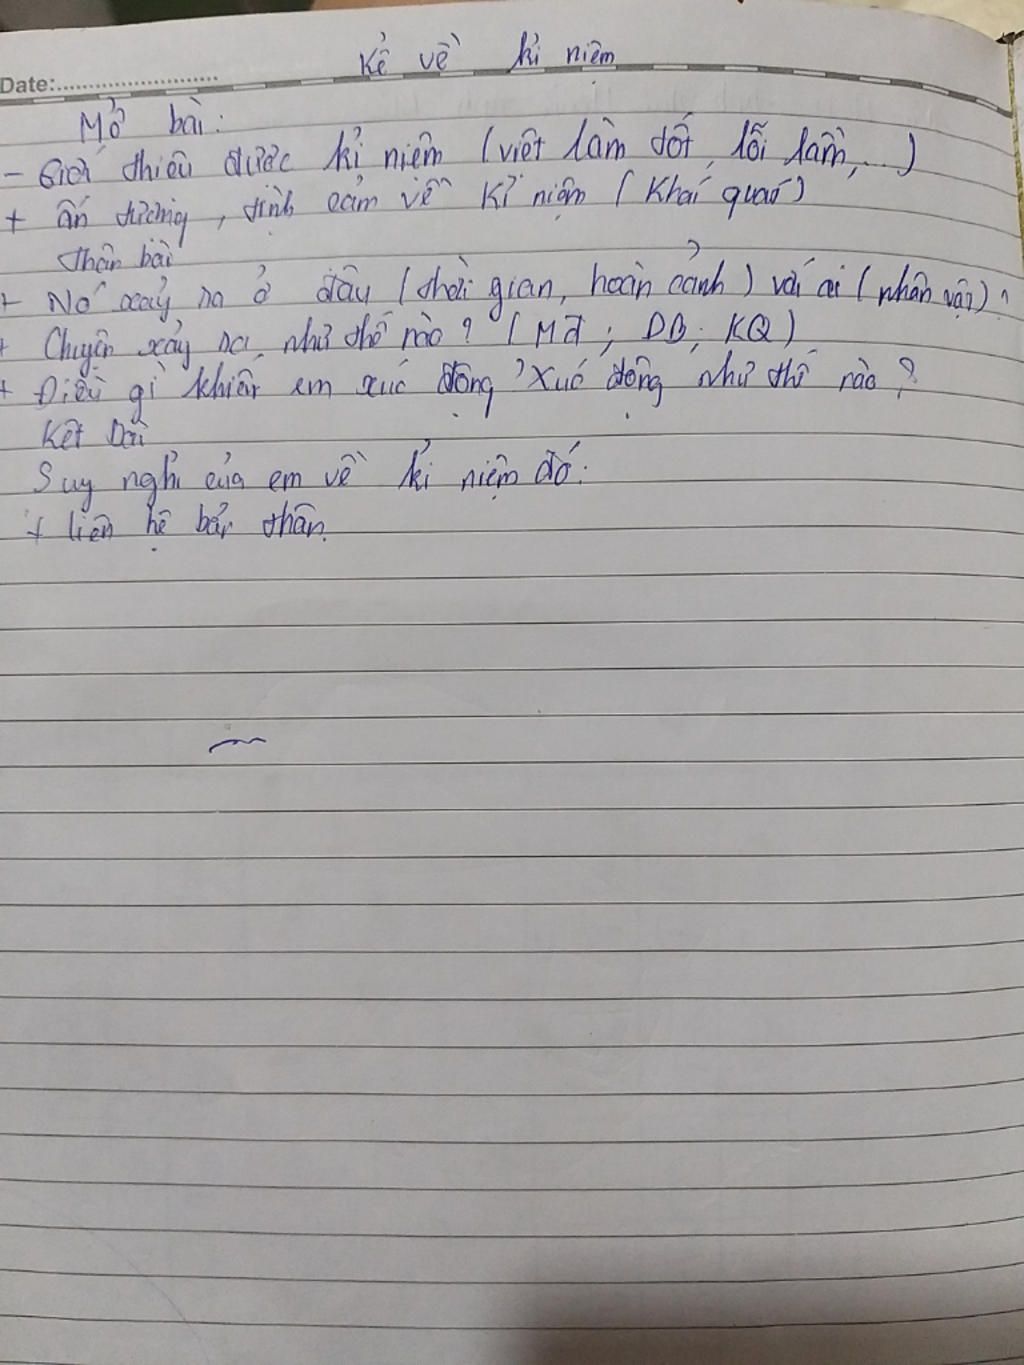 Kể về kỉ niệm
Date:
Mở bài:
- Giới thiệu được kỉ niệm (việt làm tốt, lỗi lầm,...)
+ ấn tượng, tình cảm về kỉ niệm (Khái quát)
thân bài
+ Nó xảy ra ở đâu (thời gian, hoàn cảnh) với ai (nhân vật)?
+ Chuyện xảy ra như thế nào? (MĐ; DB; KQ)
+ Điều gì khiến em xúc động? Xúc động như thế nào?
Kết bài
Suy nghỉ của em về kỉ niệm đó:
+ liên hệ bản thân.